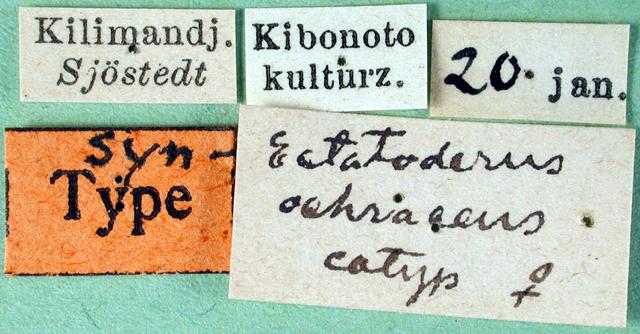 Kilimandj.
Sjöstedt
Kibonoto
kulturz.
20. jan.
Syn-
Type
Ectatoderus
ochraceus
cotyp ♀